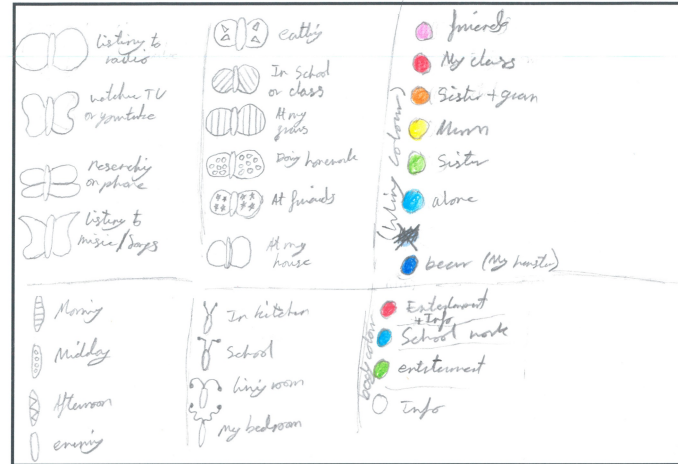 listing to
radio
watchin TV
or youtube
on phone
listing to
music/songs
eating
In School
or class
At my
grans
Doing homework
At friends
At my
house
(wing colour)
friends
My class
Sister + gran
Mum
Sister
alone
bear (My hamster)
Morning
Midday
Afternoon
evening
In kitchen
School
living room
My bedroom
body colour
+ Info
School work
Info